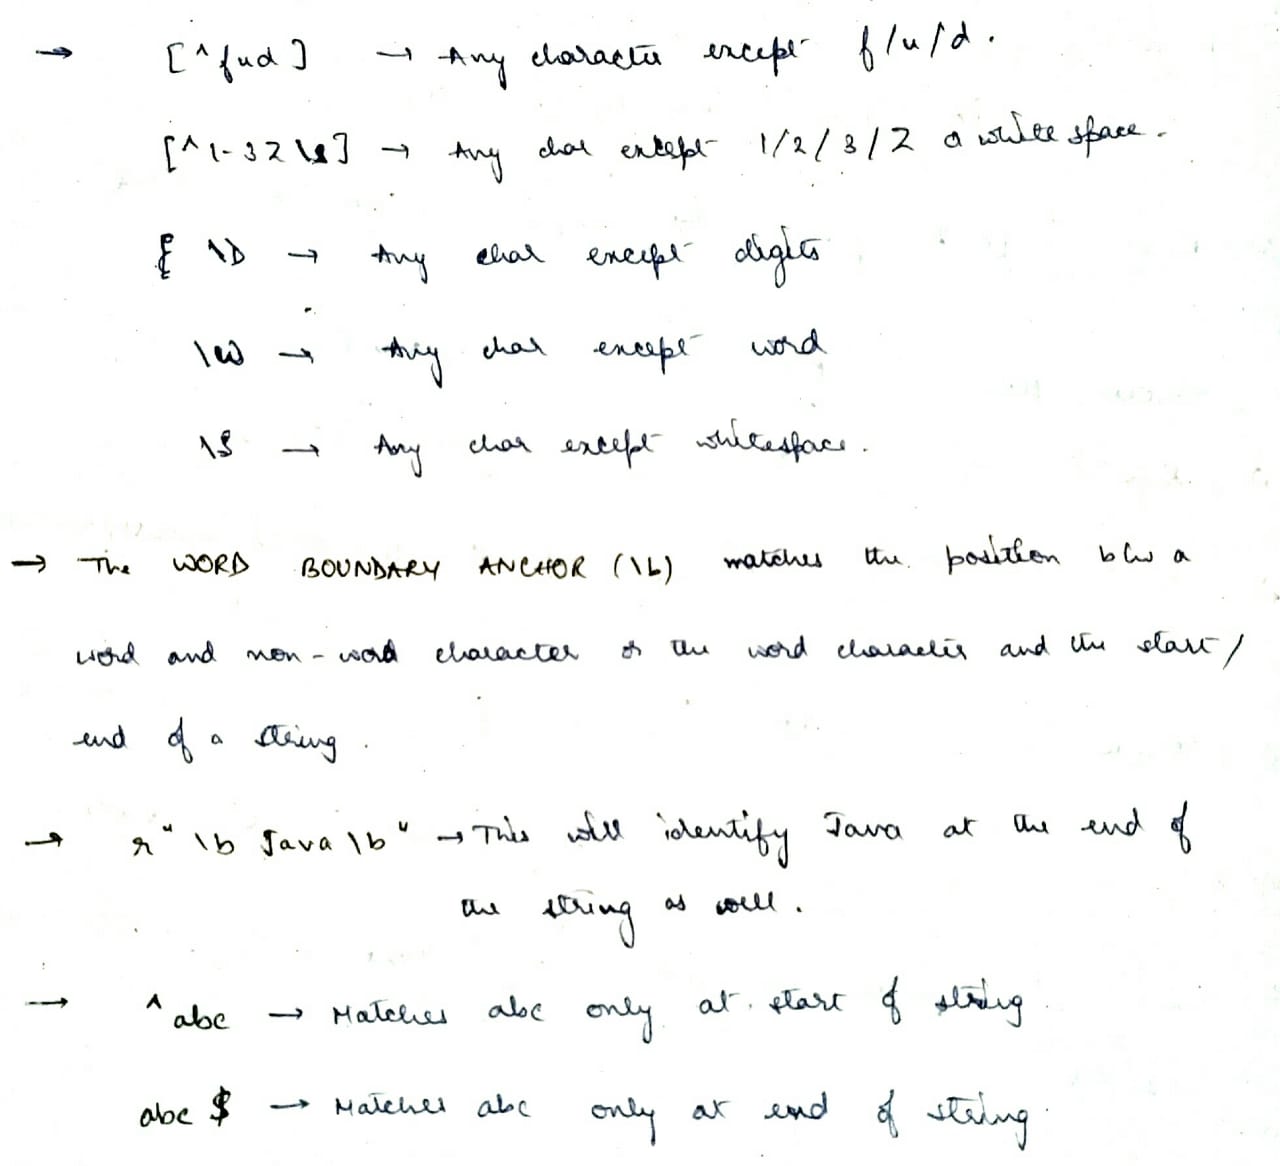 → [^fud] → Any character except f/u/d.
[^1-3Z\s] → Any char except 1/2/3/Z a white space.
{ \D → Any char except digits
\W → Any char except word
\S → Any char except whitespace.
→ The WORD BOUNDARY ANCHOR (\b) matches the position b/w a
word and non-word character or the word character and the start/
end of a string.
→ r"\b Java\b" → This will identify Java at the end of
the string as well.
→ ^abc → Matches abc only at start of string
abc$ → Matches abc only at end of string